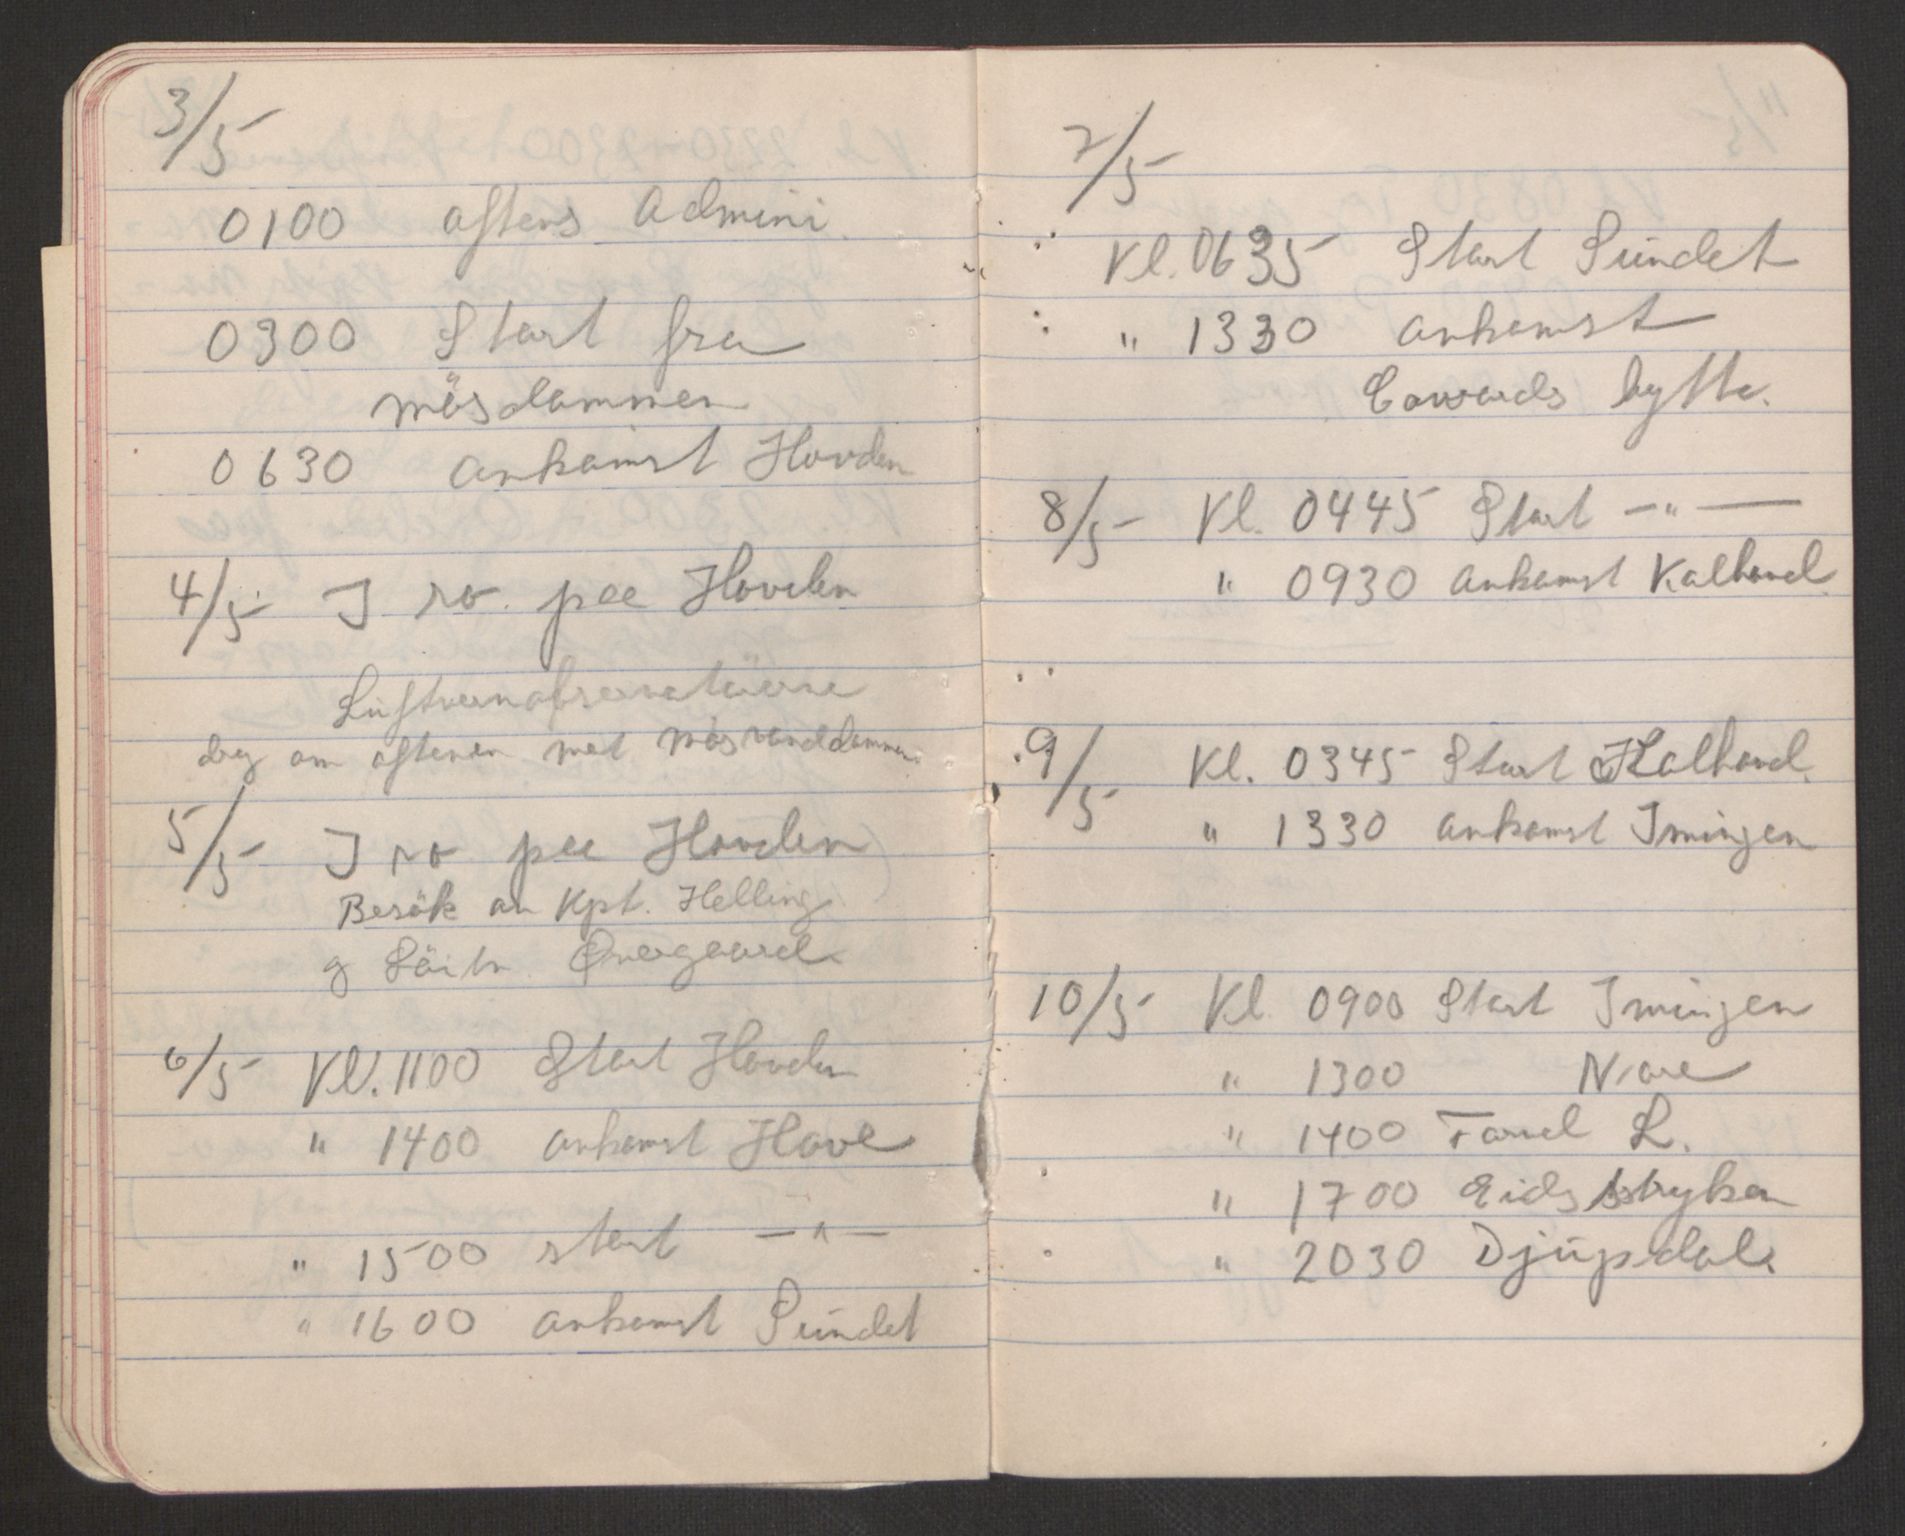 3/5
0100 aftens Admini.
0300 Start fra
Møsdammen
0630 ankomst Hovden
4/5 I ro på Hovden
Luftvernobservatørene
drog om aftenen mot Møsvanddammen.
5/5 I ro på Hovden
Besøk av Kpt. Helling
og Løitn. Øvergaard.
6/5 Kl. 1100 Start Hovden
" 1400 ankomst Hove
" 1500 start — " —
" 1600 ankomst Sundet
7/5
Kl. 0635 Start Sundet
" 1330 ankomst
hytte.
8/5 Kl. 0445 Start — " —
" 0930 ankomst Kalhovd.
9/5 Kl. 0345 Start Kalhovd.
" 1330 ankomst Imingen
10/5 Kl. 0900 Start Imingen
" 1300 Nore
" 1400 L.
" 1700 Eidsstryken
" 2030 Djupdal.